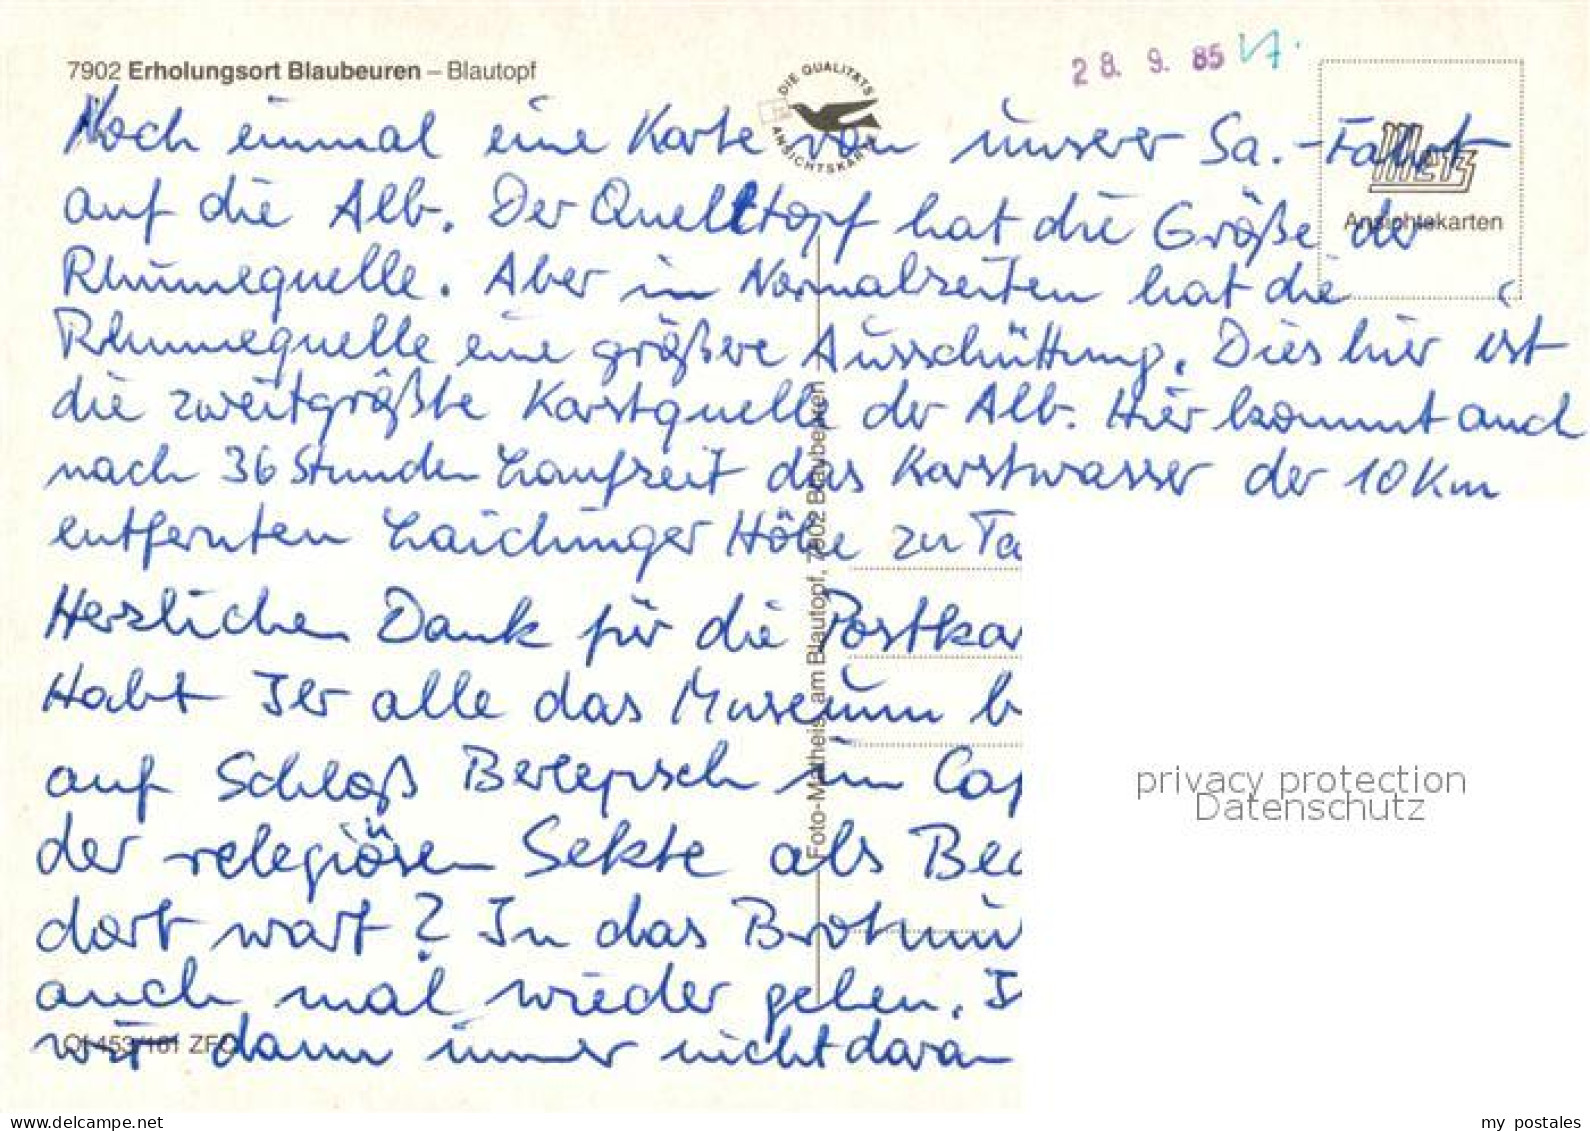 7902 Erholungsort Blaubeuren – Blautopf
DIE QUALITÄTS
ANSICHTSKARTE
28. 9. 85
Metz
Ansichtskarten
Noch einmal eine Karte von unserer Sa.-Fahrt
auf die Alb. Der Quelltopf hat die Größe der
Rhumequelle. Aber in Normalzeiten hat die
Rhumequelle eine größere Ausschüttung. Dies hier ist
die zweitgrößte Karstquelle der Alb. Hier kommt auch
nach 36 Stunden Laufzeit das Karstwasser der 10 Km
entfernten Laichinger Höhle zu Ta
Herzlichen Dank für die Postkar
Habt Ihr alle das Museum b
auf Schloß Berlepsch im Cap
der religiösen Sekte als Bec
dort wart? In das Brotmu
auch mal wieder gehen. I
wir dann immer nicht daran
Foto-Matheis, am Blautopf, 7902 Blaubeuren
161 ZFO
privacy protection
Datenschutz
www.delcampe.net
my_postales